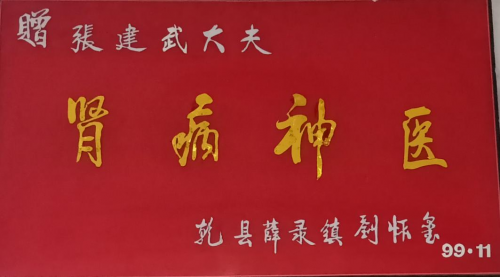 贈 張建武大夫
肾病神医
乾县薛录镇刘怀玺
99·11